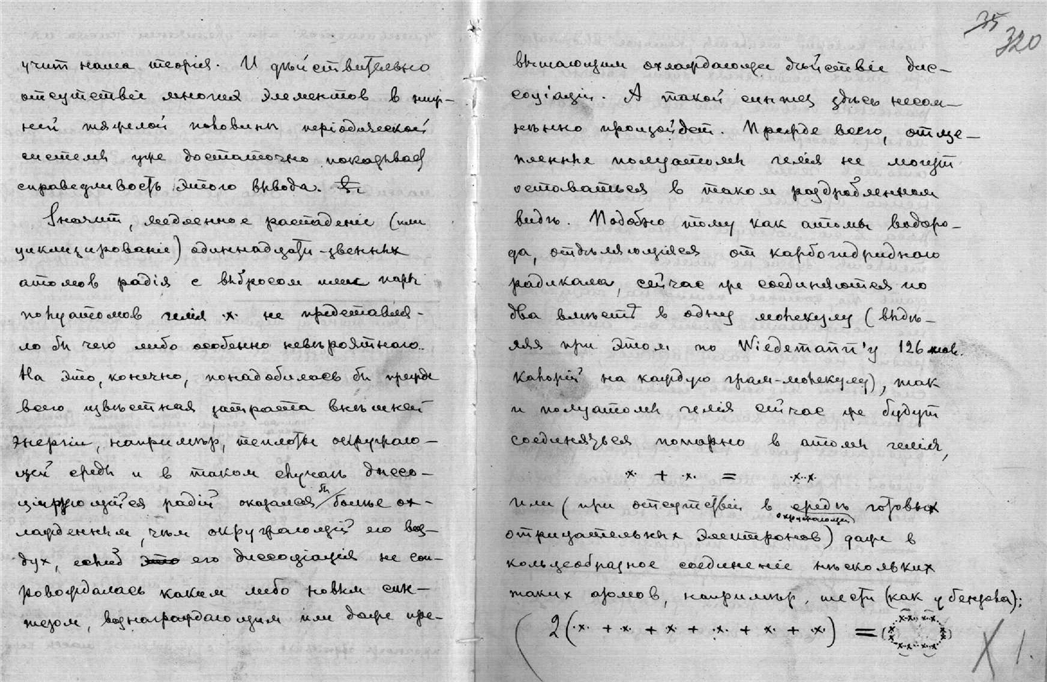 учит наша теорія. И дѣйствительно
отсутствіе многих элементов в ниж-
ней тяжелой половинѣ періодической
системы уже достаточно показывает
справедливость этого вывода.
Значит, медленное распаденіе (или
циклизированіе) одиннадцати-звенных
атомов радія с выбросом пары
полуатомов гелія ·x· не представля-
ло бы чего либо особенно невѣроятнаго.
На это, конечно, понадобилась бы прежде
всего извѣстная затрата внѣшней
энергіи, напримѣр, теплоты окружаю-
щей среды и в таком случаѣ диссо-
циирующійся радій оказался бы болѣе ох-
лажденным, чѣм окружающій его воз-
дух, если б его диссоціація не соп-
ровождалась каким либо новым син-
тезом, вознаграждающим или даже пре-
35
320
вышающим охлаждающее дѣйствіе дис-
соціаціи. А такой синтез здѣсь несом-
нѣнно произойдет. Прежде всего, отще-
пленные полуатомы гелія не могут
оставаться в таком раздробленном
видѣ. Подобно тому как атомы водоро-
да, отдѣляющіеся от карбогидриднаго
радикала, сейчас же соединяются по
два вмѣстѣ в одну молекулу (выдѣ-
ляя при этом по Wiedemann'у 126 мал.
калорій на каждую грам-молекулу), так
и полуатомы гелія сейчас же будут
соединяться попарно в атомы гелія,
x· + ·x· = ·x·x·
или (при отсутствіи в окружающей средѣ готовых
отрицательных электронов) даже в
кольцеобразное соединеніе нѣскольких
таких атомов, напримѣр, шести (как у бензола):
2(·x· + ·x· + ·x· + ·x· + ·x· + ·x·) =
X 1.